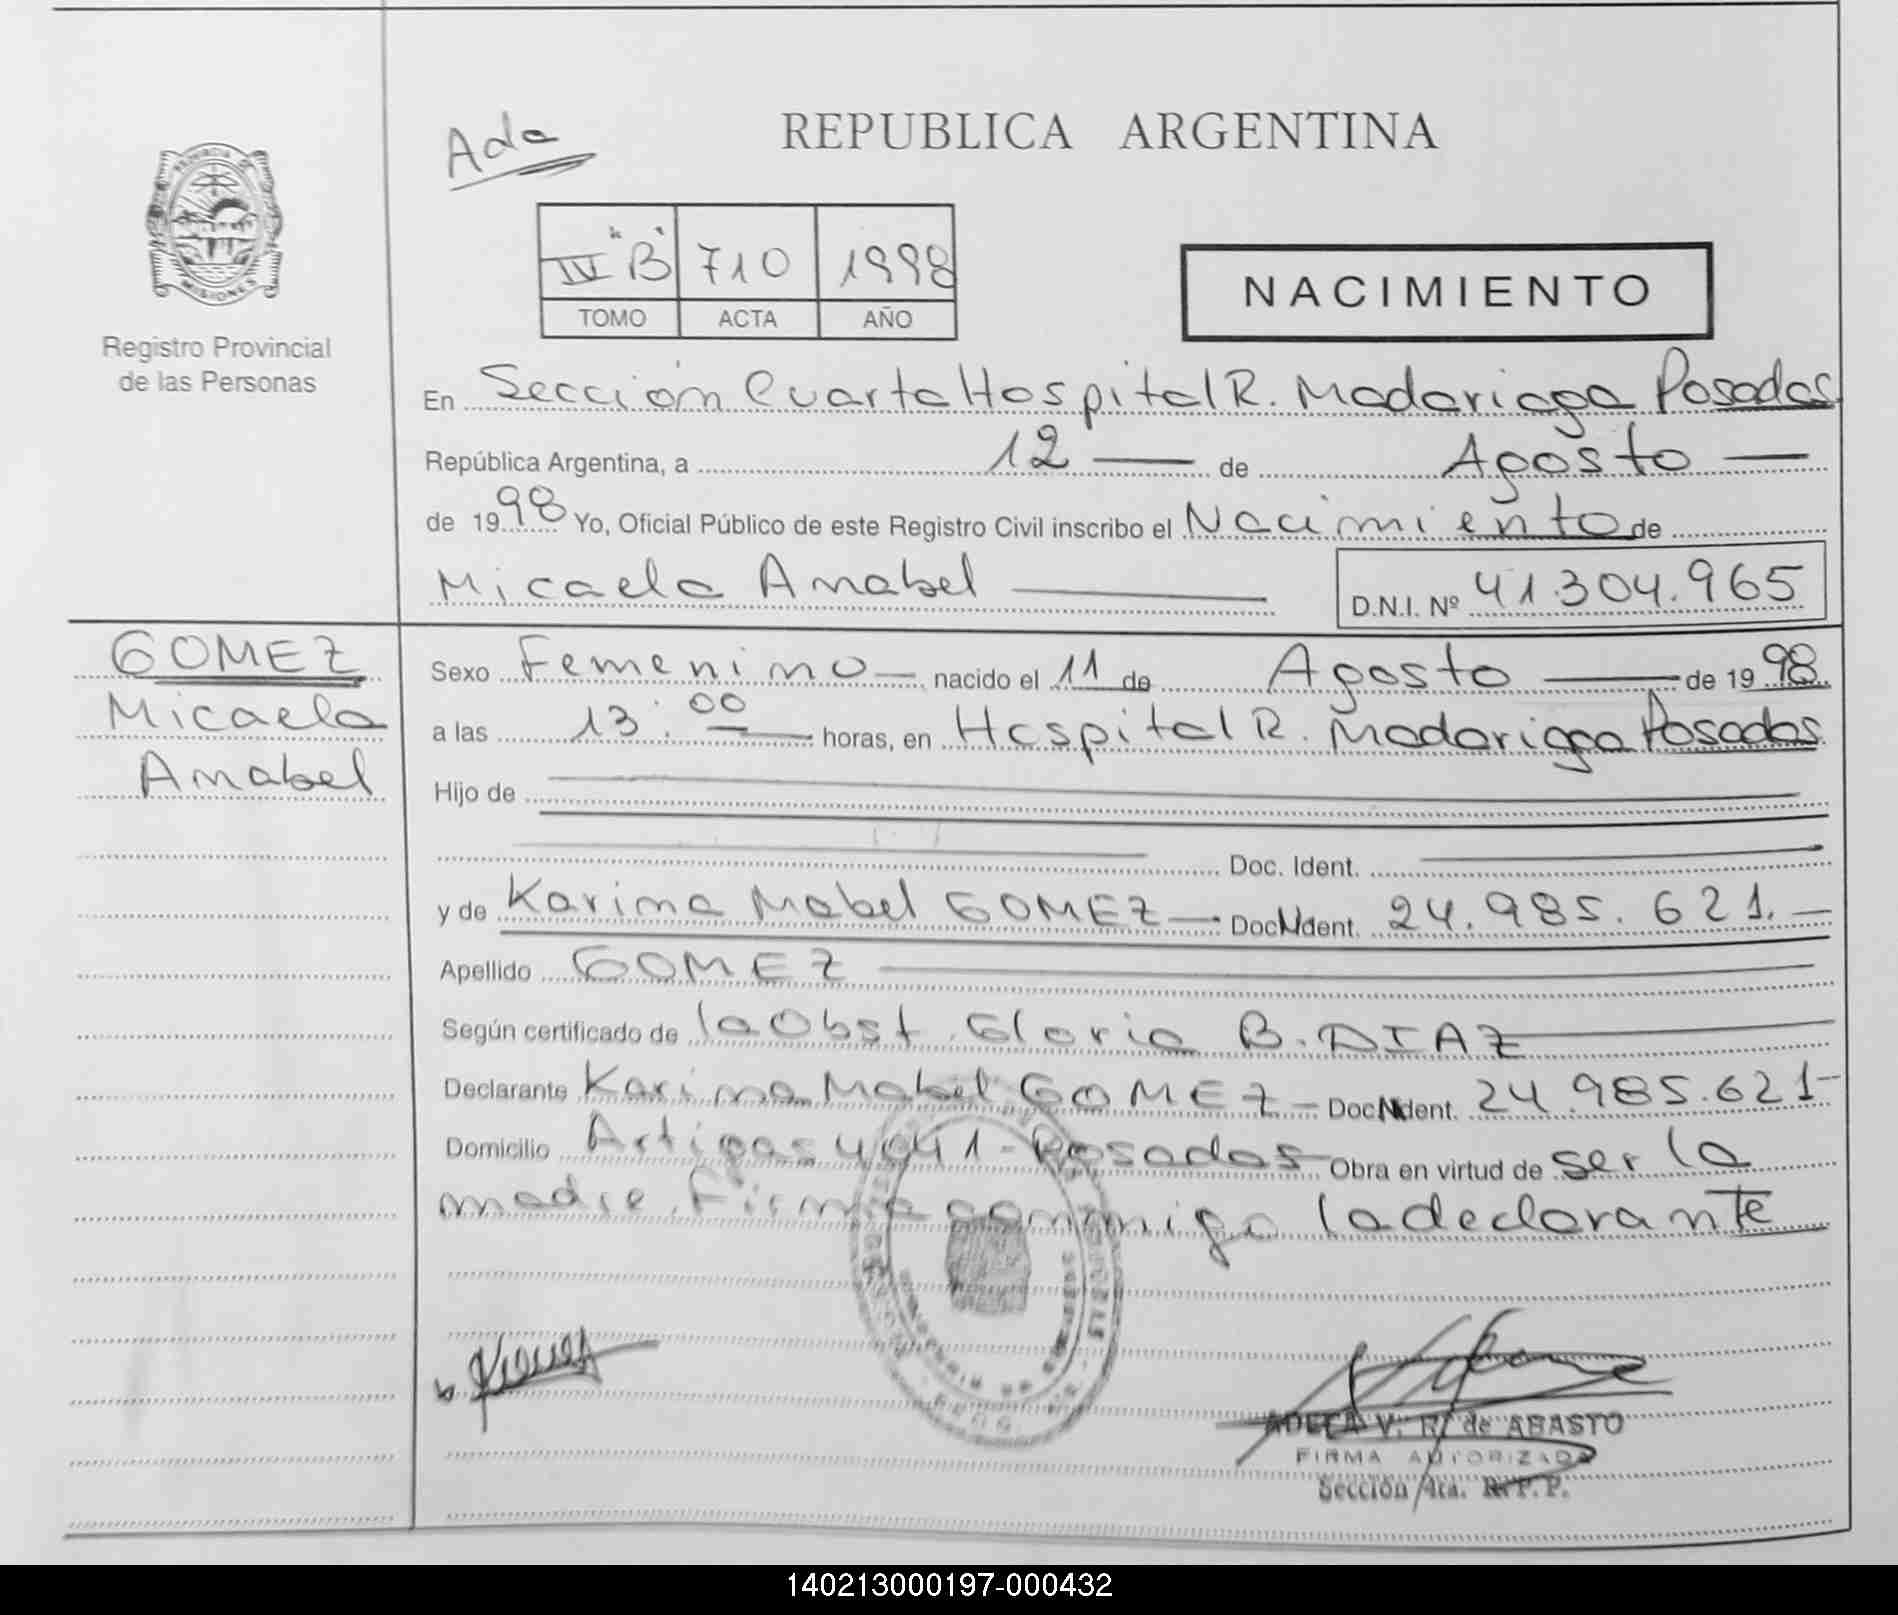 Ada
REPUBLICA ARGENTINA
PROVINCIA DE
MISIONES
Registro Provincial
de las Personas
IV "B" 710 1998
TOMO ACTA AÑO
NACIMIENTO
En Sección Cuarta Hospital R. Madariaga Posadas
República Argentina, a 12 — de Agosto —
de 1998 Yo, Oficial Público de este Registro Civil inscribo el Nacimiento de
Micaela Anabel —
D.N.I. Nº 41.304.965
GOMEZ
Micaela
Anabel
Sexo Femenino — nacido el 11 de Agosto — de 1998
a las 13:00 — horas, en Hospital R. Madariaga Posadas
Hijo de —
— Doc. Ident. —
y de Karina Mabel GOMEZ — Doc N Ident. 24.985.621. —
Apellido GOMEZ —
Según certificado de la Obst. Gloria B. DIAZ —
Declarante Karina Mabel GOMEZ — Doc N Ident. 24.985.621 —
Domicilio Artigas 4041 - Posadas — Obra en virtud de ser la
madre. Firma conmigo la declarante
ADELA V. R. de ABASTO
FIRMA AUTORIZADA
Sección 4ta. R. P. P.
140213000197-000432